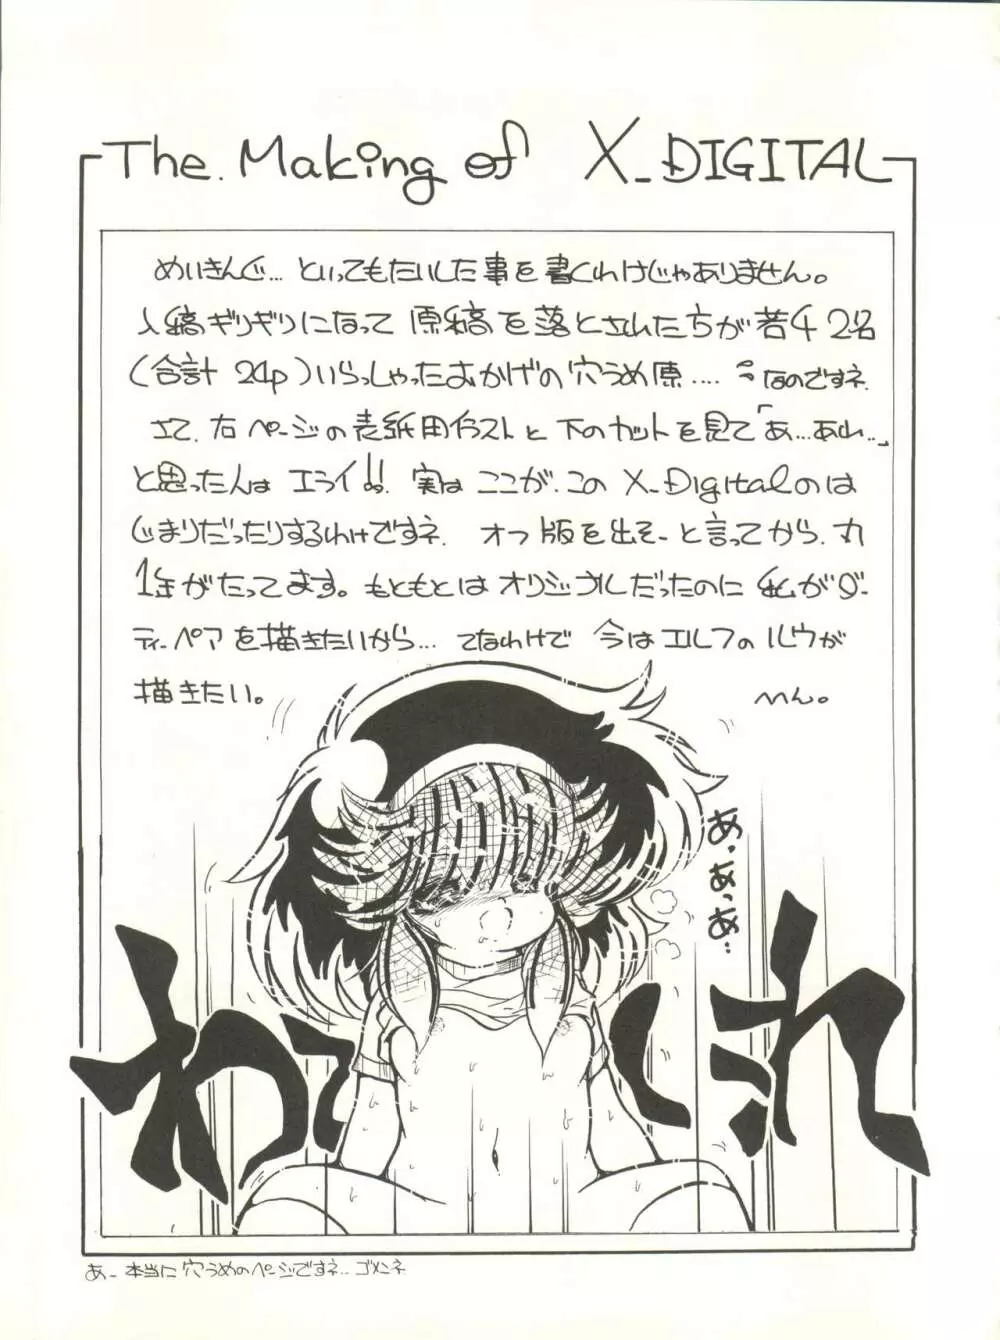 The. Making of X_DIGITAL
めいきんぐ… といってもたいした事を書くわけじゃありません。
入稿ギリギリになって 原稿を落とされた方が若干2名
(合計 24p)いらっしゃったおかげの穴うめ原…. なのですネ.
さて、右ページの表紙用イラストと下のカットを見て「あ…あれ…」
と思った人は エライ!! 実は ここが、この X_Digitalのは
じまりだったりするわけですネ. オフ版を出そーと言ってから、丸
1年がたってます。もともとは オリジナルだったのに 私がダー
ティーペアを描きたいから… てなわけで 今は エルフの ルウが
描きたい。 へん。
あ、あっあ…
わ
れ
あー 本当に穴うめのページですネ… ゴメンネ